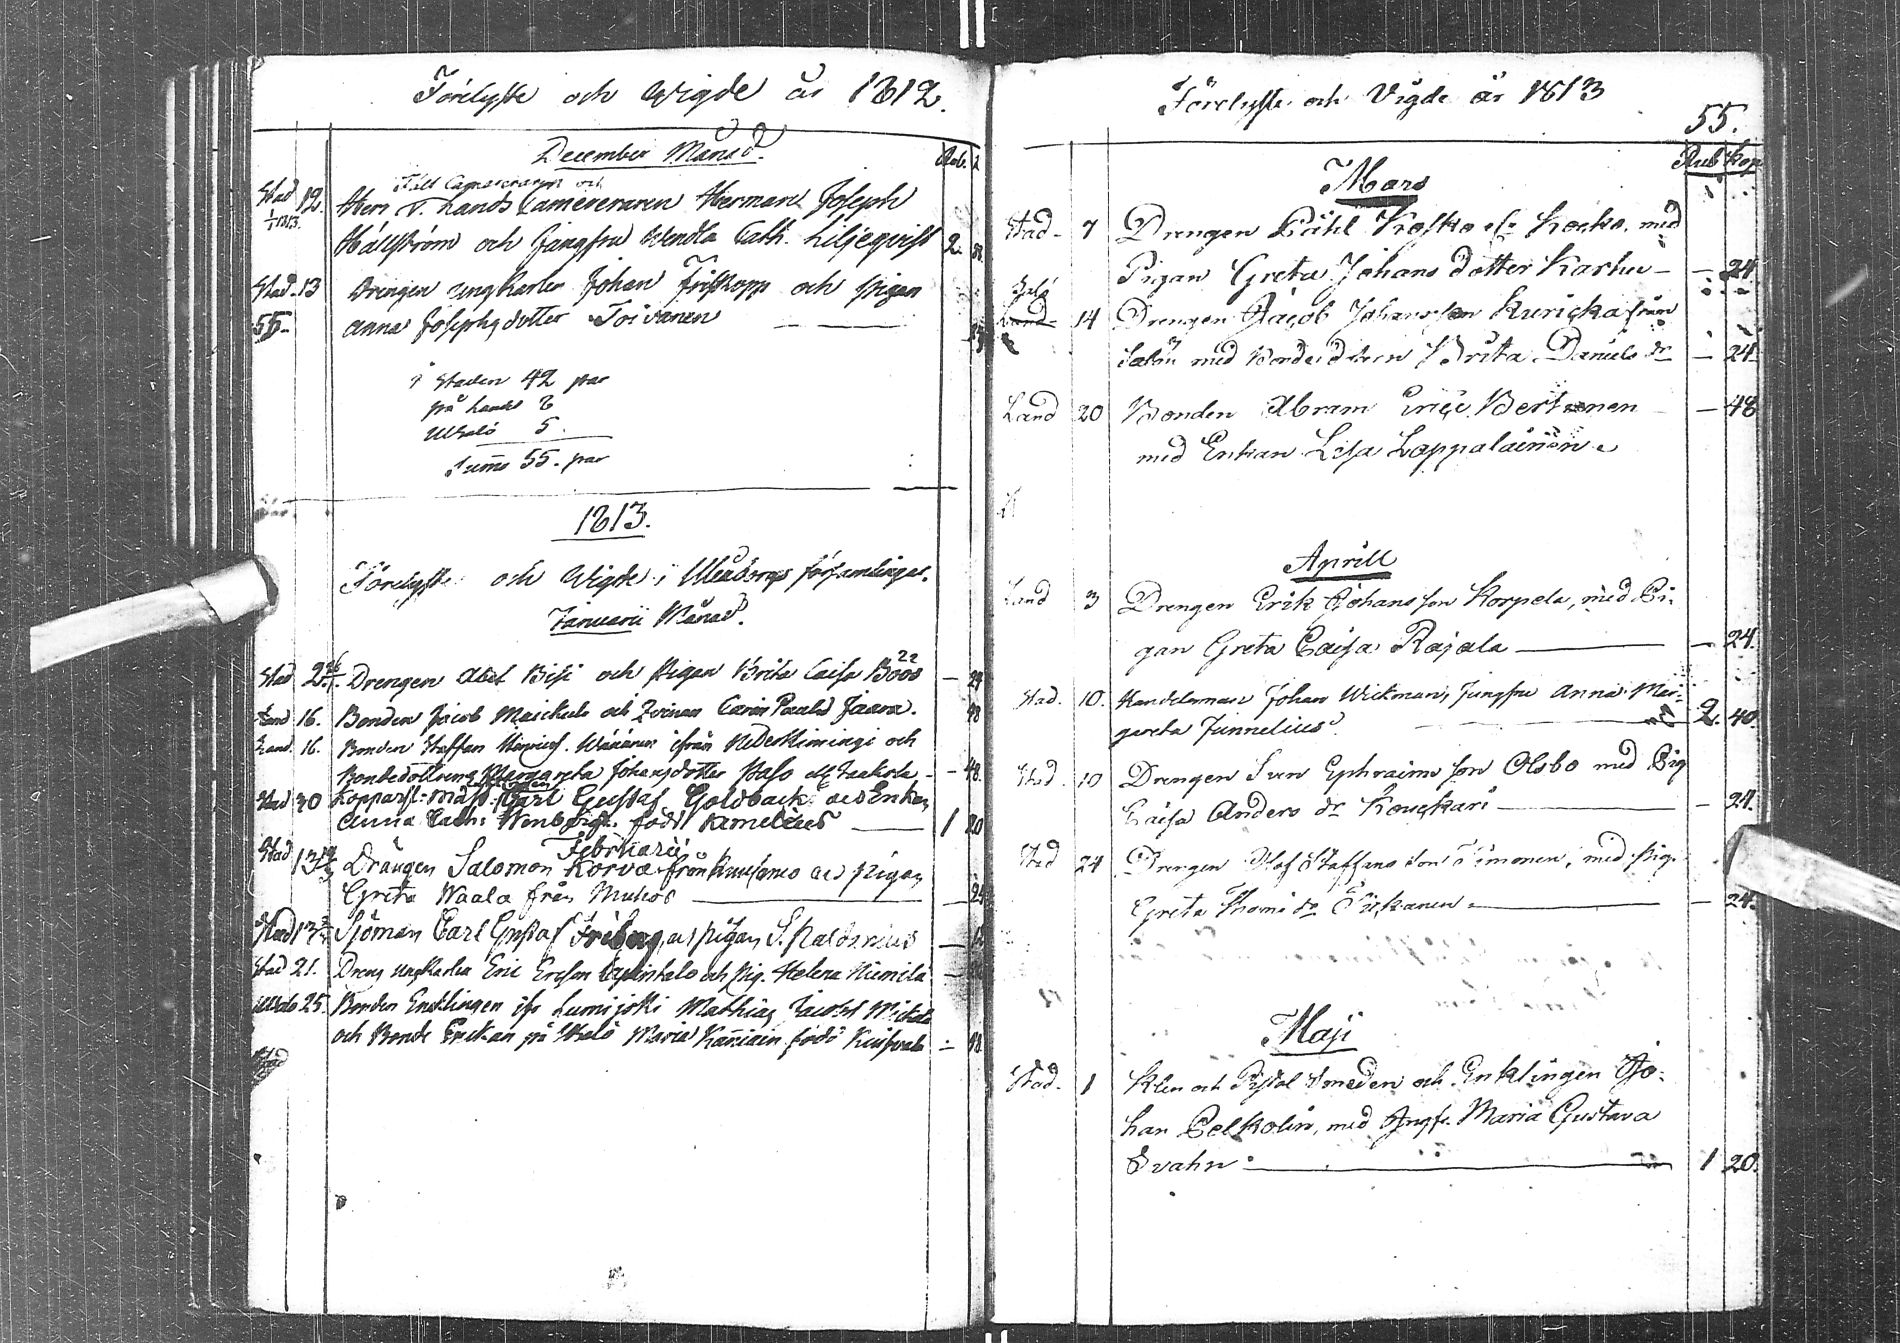 Förelyste och Wigde år 1812.
December Månad.
Rub.
Stad 12. Herr v. Lands Camereraren Herman Joseph
1/1 1813.
Hälström och Jungfru Wendla Cath. Liljeqvist 2.
Stad. 13 Drengen ungkarlen Johan Friskopp och pigan
55. Anna Josephsdotter Toivanen
i Staden 42 par
på Landet 8
Uleåsalo 5.
Summa 55. par
1813.
Förelyste och Wigde i Uleåborgs församlingar.
Januarii Månad.
Stad Drengen Abel Bisi och Pigan Brita Caisa Böös — 24
Land 16. Bonden Jacob Maickula och Qvinan Carin Pauls Jaara. 48
Land. 16. Bonden Staffan Hinricss. Wänänen ifrån Nederkimingi och
Bondedottren Margareta Johansdotter Palo — 48.
Stad 30 Carl Gustaf Goldback och Enkan
Anna Cath: född — 1 20
Februarii
Stad 13 Drängen Salomon Korva från Kuusamo och Pigan
Greta Waala från Muhos — 24
Stad 13 Sjöman Carl Gustaf Friberg, och pigan S. Paldanius —
Stad 21. Dreng ungkarlen Eric Ersson och Pig. Helena Niemilä —
25. Bonden Enklingen ifr Lumijoki Mathias Jacobss
och Bonde Enkan på Maria född — 48
Stad
Förelyste och Vigde år 1813
55.
Rub Kop
Mars
Stad - 7 Drengen Påhl Kosko el: Kocko, med
Pigan Greta Johans dotter Karhu — — 24
Land 14 Drengen Jacob Johansson Kuricka från
Salöu med Bondedotren Brita Daniels dr — 24
Land 20 Bonden Abram Eric — 48
med Enkan Lisa Lappalainen.
Aprill
Land 3 Drengen Erik Johansson Korpela, med Pi-
gan Greta Caisa Rajala — — 24.
Stad. 10. Handelsman Johan Wickman, Jungfru Anna Mar-
gareta Junnelius — 2. 40.
Stad. 10 Drengen Sven Ephraims son Olsbo med Pig
Caisa Anders dr — — 24.
Stad 24 Drengen Olof Staffans Son Timonen, med pig.
Greta Thoms dr Tickanen. — — 24.
Maji
Stad. 1 Klen och Pistol Smeden och Enklingen Jo-
han Pelkolin, med Jngfr. Maria Gustava
Svahn. — 1 20.